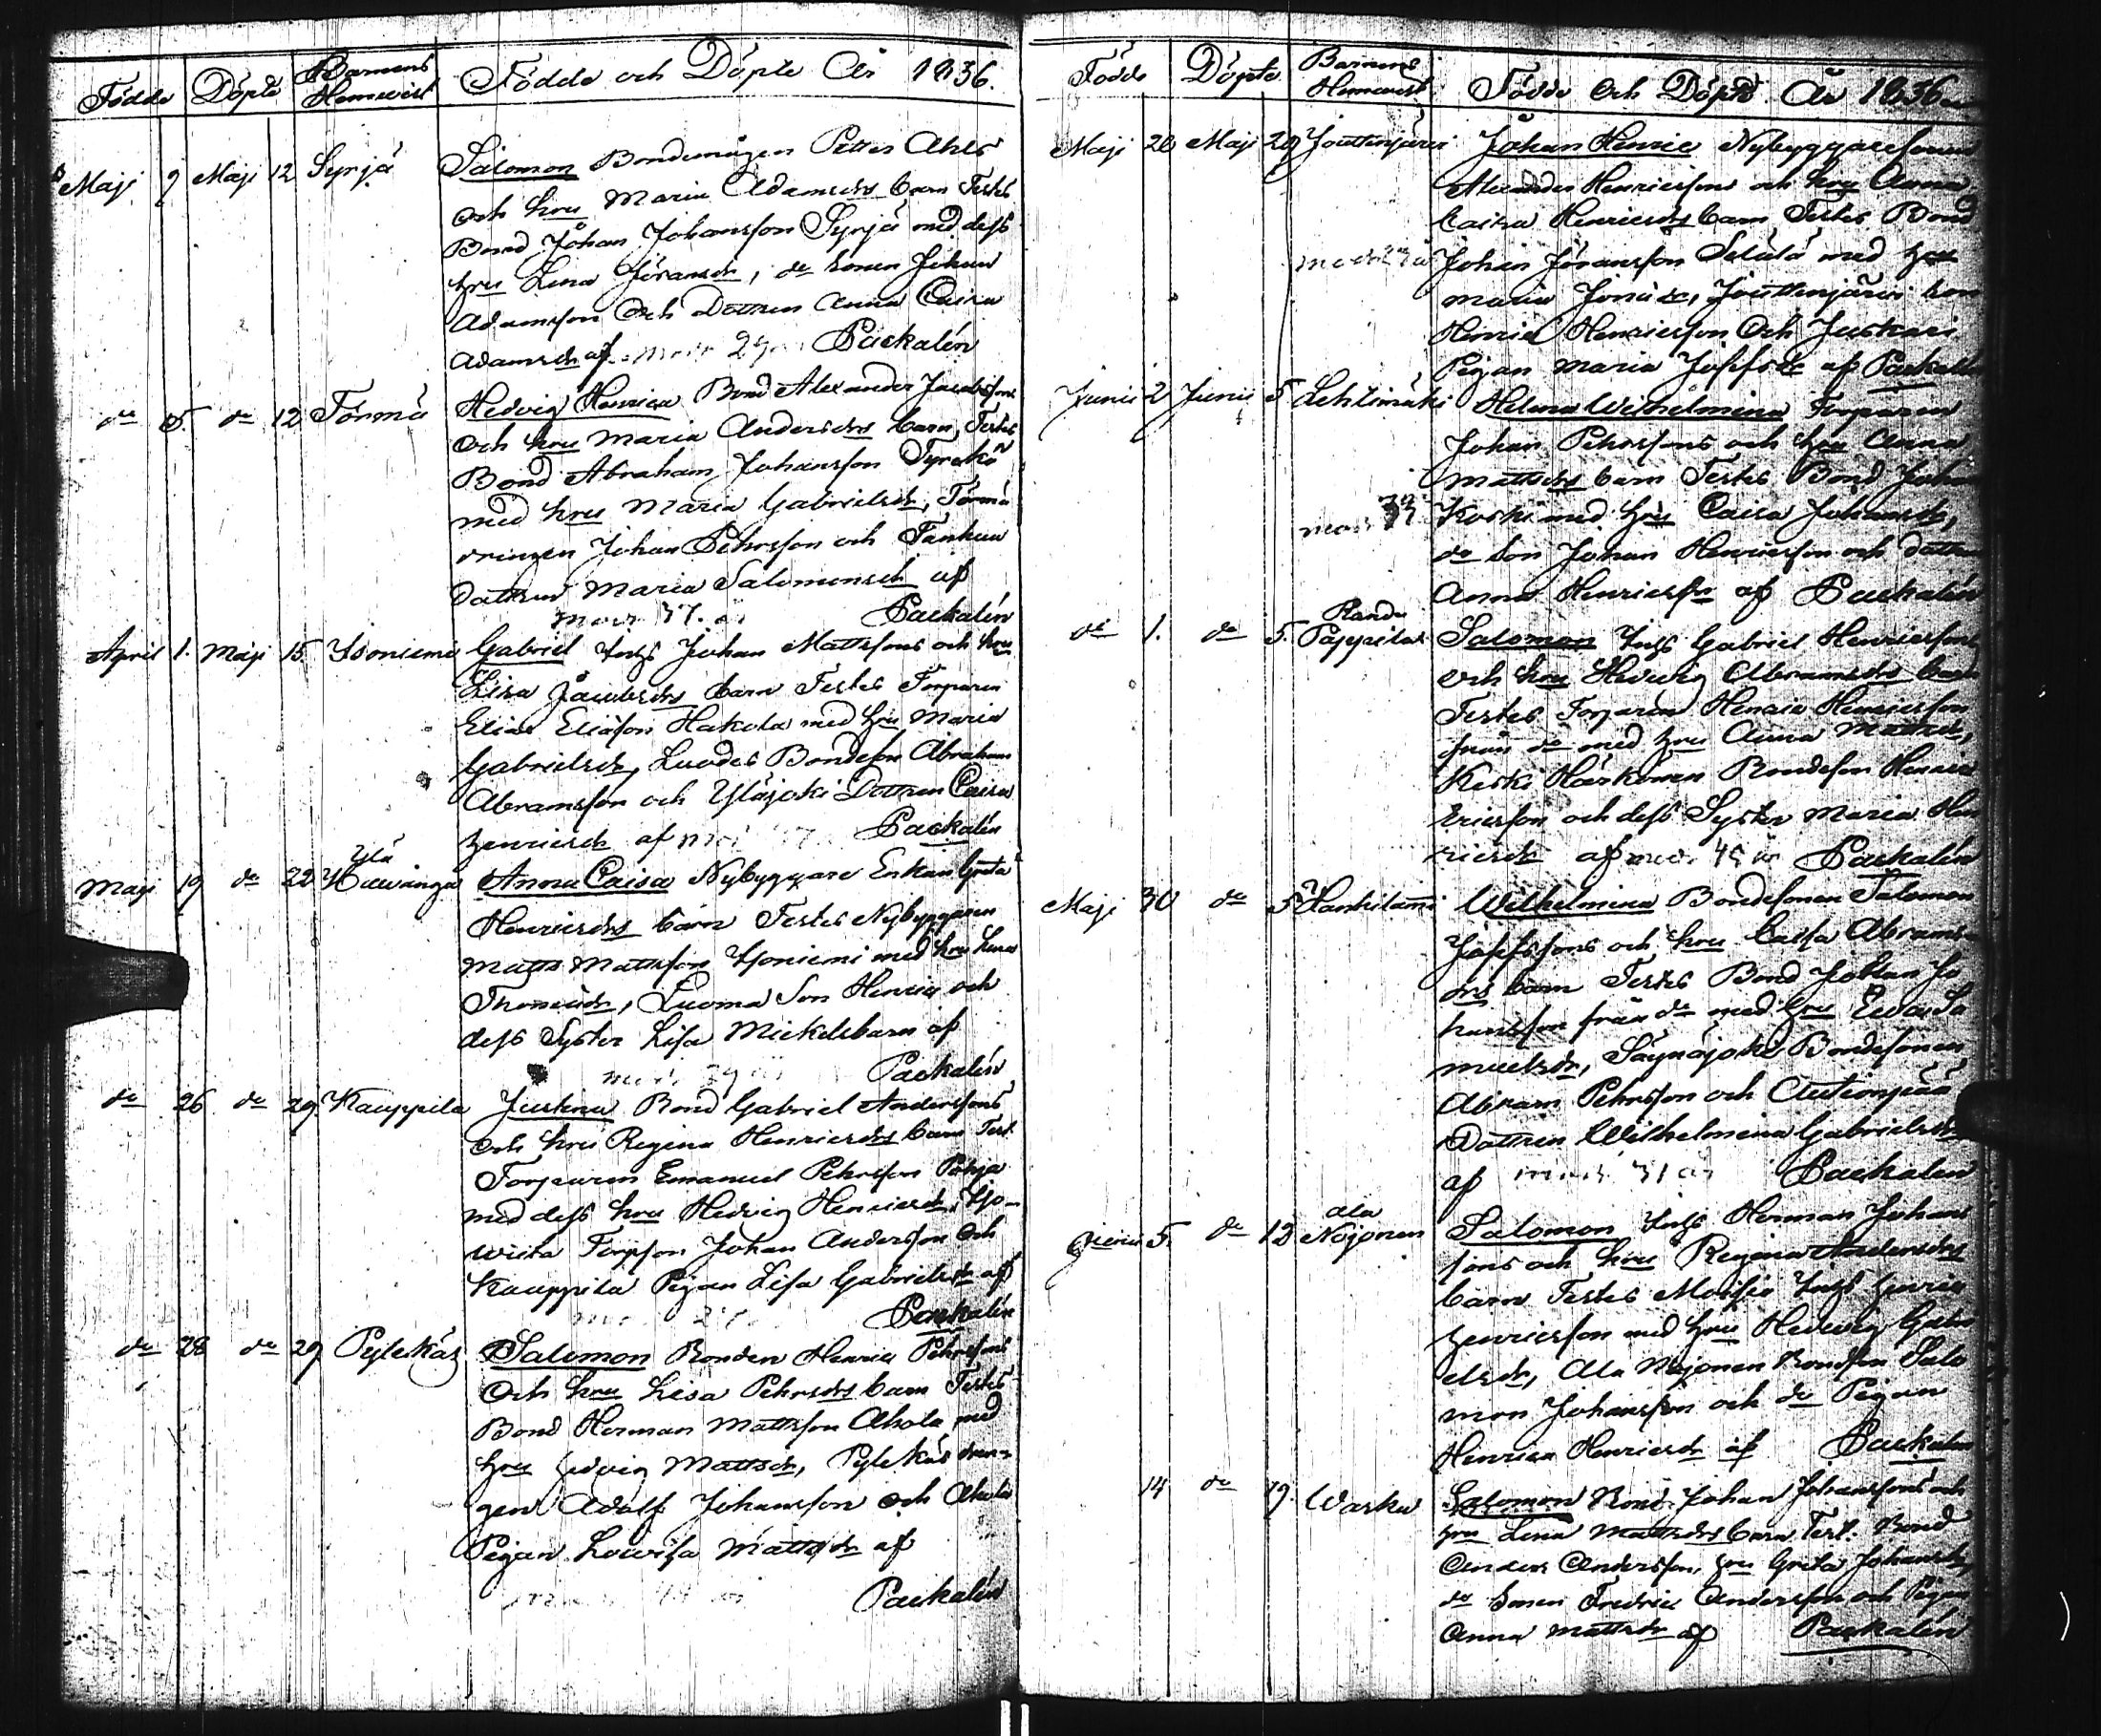 Födde Döpte Barnens Hemvist Födde och Döpte År 1836.
Maji 9 Maji 12 Syrjä Salomon Bondemågen Petter Ahls
och hru Maria Adamsdrs barn Testes
Bond Johan Johansson Syrjä med dess
hru Lena Göransdr, do sonen Johan
Adamsson och Dottren Anna Caisa
Adamsdr af Packalén
do 5. do 12 Törmä Hedvig Henrica Bond Alexander Jacobssons
och hru Maria Andersdrs barn, Testes
Bond Abraham Johansson Tyrekö
med hru Maria Gabrielsdr, Törmä
drängen Johan Pehrsson och
Dottren Maria Salomonsdr af
mod 37. år Packalén
April 1. Maji 15 Isoniemi Gabriel Inhs Johan Mattssons och hru
Lisa Jacobsdrs barn Testes Torparen
Elias Eliasson Hakola med hru Maria
Gabrielsdr, Luodes Bondeson Abraham
Abramsson och Yläjoki Dottren Caisa
Henricsdr af Packalén
Maji 19 do 22 Ylä Anna Caisa Nybyggare Enkan Greta
Henricsdrs barn Testes Nybyggaren
Matts Mattsson Isoniemi med hru Lena
Thomasdr, Luoma Son Henric och
dess Syster Lisa Mickelsbarn af
Packalén
do 26 do 29 Kauppila Justina Bond Gabriel Anderssons
och hru Regina Henricsdrs barn Test.
Torparen Emanuel Pehrsson Pohja
med dess hru Hedvig Henricsdr,
Torpson Johan Andersson och
Kauppila Pigan Lisa Gabrielsdr af
Packalén
do 28 do 29 Pylekäs Salomon Bonden Henric Pehrssons
och hru Lisa Pehrsdrs barn Testes
Bond Herman Mattsson Ahola med
hru Hedvig Mattsdr, Pylekäs drän-
gen Adolf Johansson och Ahola
Pigan Lovisa Mattsdr af
Packalén
Födde Döpte Barnens Hemvist Födde och Döpte År 1836
Maji 28 Maji 29 Jouttenjärvi Johan Henric Nybyggaresonen
Alexander Henricssons och hru Anna
Caisa Henricsdrs barn Testes Bond
mod 27 år Johan Göransson med hru
Maria Jonasdr, Jouttenjärvi son
Henric Henricsson och
Pigan Maria Josefsdr af Packalén
Junii 2 Junii 5. Lehtimäki Helena Wilhelmina Torparen
Johan Pehrssons och hru Anna
Mattsdrs barn Testes Bond Johan
Koski med hru Caisa Johansdr,
do son Johan Henricsson och dottren
Anna Henricsdr af Packalén
do 1. do 5. Randa Pappilas Salomon Inhs Gabriel Henricssons
och hru Hedvig Abramsdrs barn
Testes Torparen Henric Henricsson
från do med hru Anna Mattsdr,
Keski Härkönen Bondeson Henric
Ericsson och dess Syster Maria Hen
ricsdr af Packalén
Maji 30 do 5 Hanhilammi Wilhelmina Bondesonen Salomon
Josefssons och hru Caisa Abrams-
drs barn Testes Bond Johan Jo
hansson från do med hru Eva Sa
muelsdr, Säynäjoki Bondesonen
Abram Pehrsson och
Dottren Wilhelmina Gabrielsdr
af mod. 31 år Packalén
Junii 5. do 12 Ala Nojonen Salomon Inhs Herman Johans
sons och hru Regina Andersdrs
barn Testes Inhs Henric
Henricsson med hru Hedvig Gabri
elsdr, Ala Nojonen Bondson Salo
mon Johansson och do Pigan
Henrica Henricsdr af Packalén
14 do 19. Warku Salomon Bond Johan Johanssons och
hru Lena Mattsdrs barn Test. Bond
Anders Andersson, hru Greta Johansdr,
do Sonen Fredric Andersson och Pigan
Anna Mattsdr af Packalén